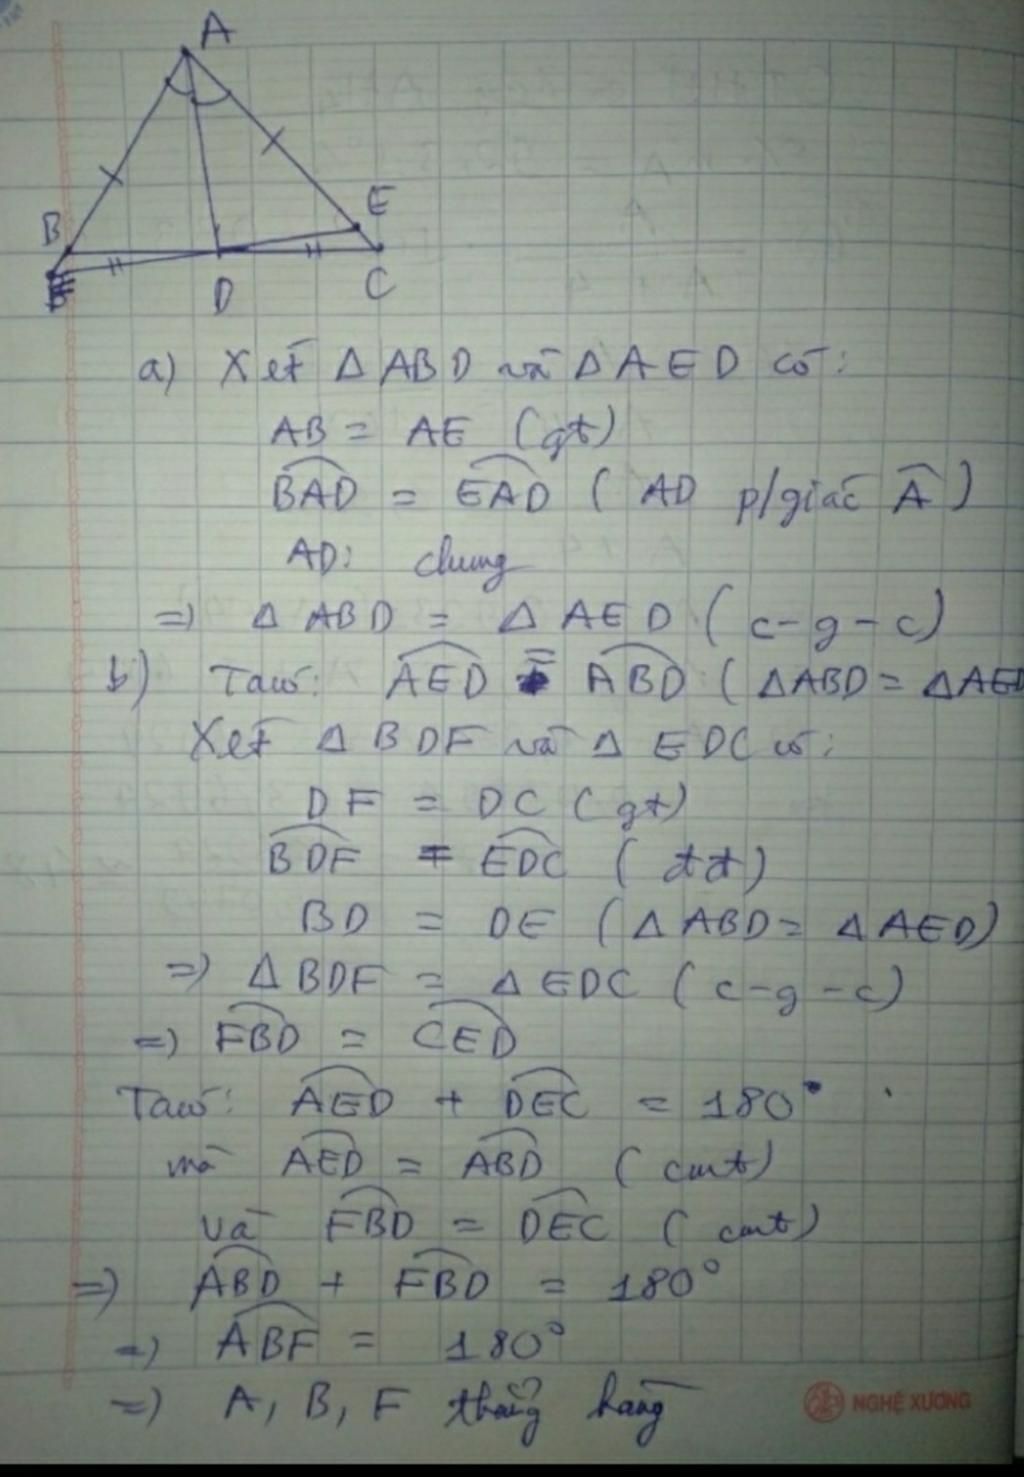 A
B
E
D
C
a) Xét Δ ABD và Δ AED có:
AB = AE (gt)
BAD = EAD ( AD p/giác Â )
AD: chung
=) Δ ABD = Δ AED ( c-g-c)
b) Ta có: AED = ABD ( ΔABD = ΔAED
Xét Δ BDF và Δ EDC có:
DF = DC ( gt)
BDF = EDC ( đđ)
BD = DE ( Δ ABD = Δ AED)
=) Δ BDF = Δ EDC ( c-g-c)
=) FBD = CED
Ta có: AED + DEC = 180°
mà AED = ABD ( cmt)
và FBD = DEC ( cmt)
=) ABD + FBD = 180°
=) ABF = 180°
=) A, B, F thẳng hàng
NGHÊ XƯƠNG